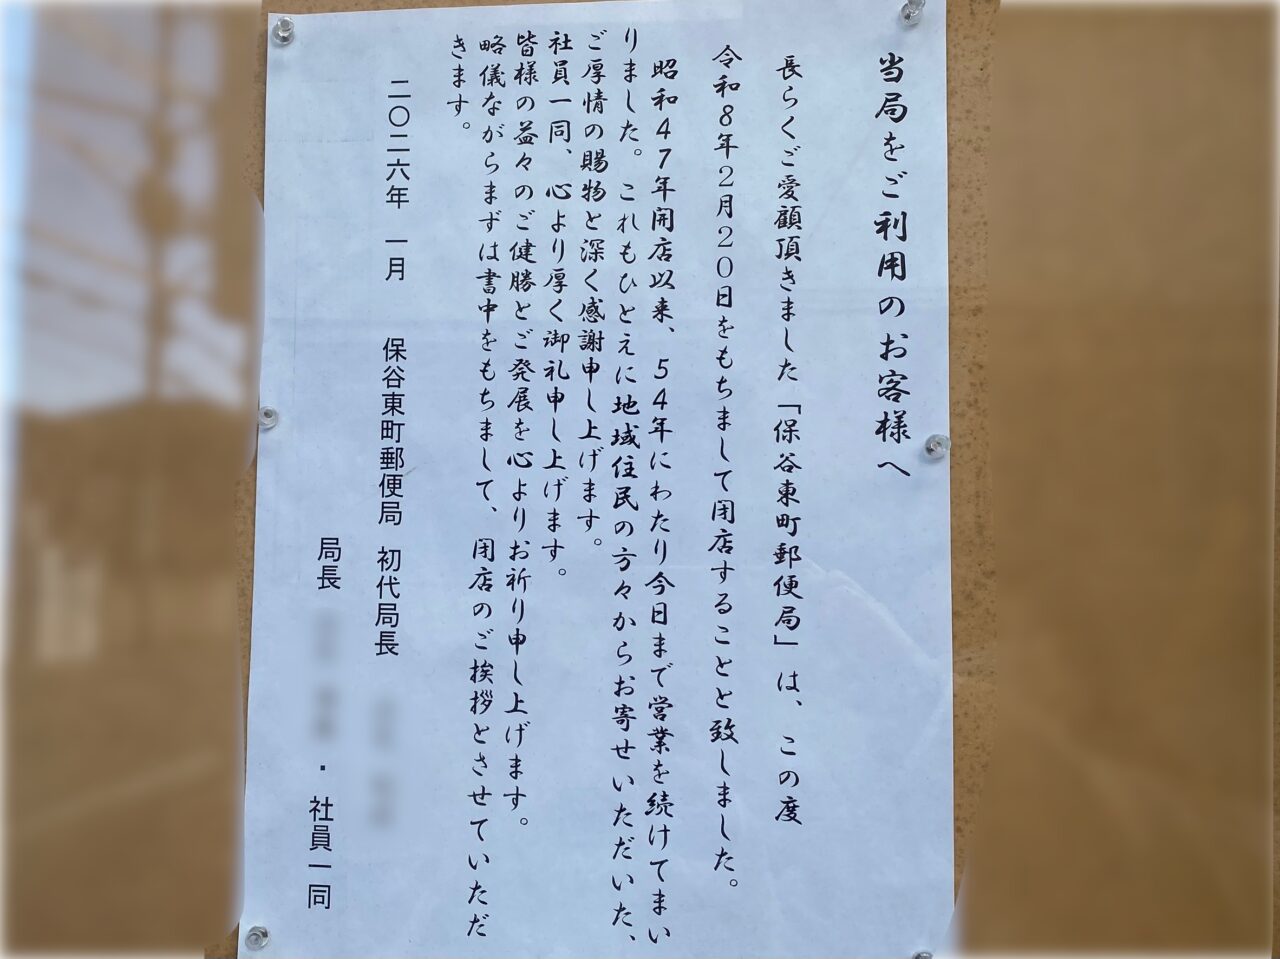 当局をご利用のお客様へ
長らくご愛顧頂きました「保谷東町郵便局」は、この度
令和８年２月２０日をもちまして閉店することと致しました。
昭和４７年開店以来、５４年にわたり今日まで営業を続けてまい
りました。これもひとえに地域住民の方々からお寄せいただいた、
ご厚情の賜物と深く感謝申し上げます。
社員一同、心より厚く御礼申し上げます。
皆様の益々のご健勝とご発展を心よりお祈り申し上げます。
略儀ながらまずは書中をもちまして、閉店のご挨拶とさせていただ
きます。
二〇二六年 一月 保谷東町郵便局 初代局長
局長 ・社員一同